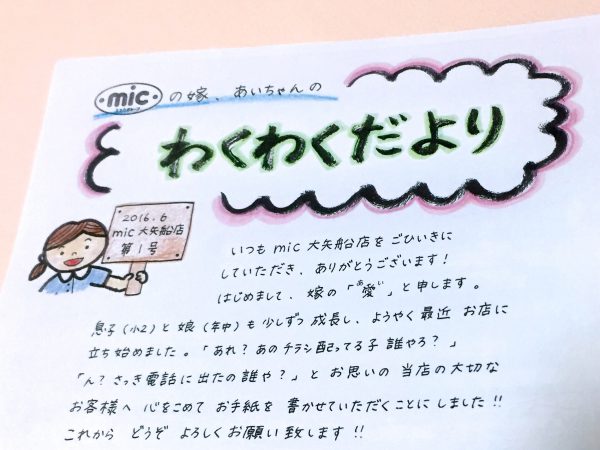 micの嫁、あいちゃんの
わくわくだより
2016.6
mic 大矢船店
第1号
いつも mic 大矢船店を ごひいきに
していただき、ありがとうございます!
はじめまして、嫁の「愛」と申します。
息子(小2)と 娘(年中)も 少しずつ 成長し、ようやく 最近 お店に
立ち始めました。「あれ?あのチラシ配ってる子 誰やろ?」
「ん?さっき電話に出たの誰や?」と お思いの 当店の大切な
お客様へ 心をこめて お手紙を 書かせていただくことに しました!!
これから どうぞ よろしく お願い 致します!!